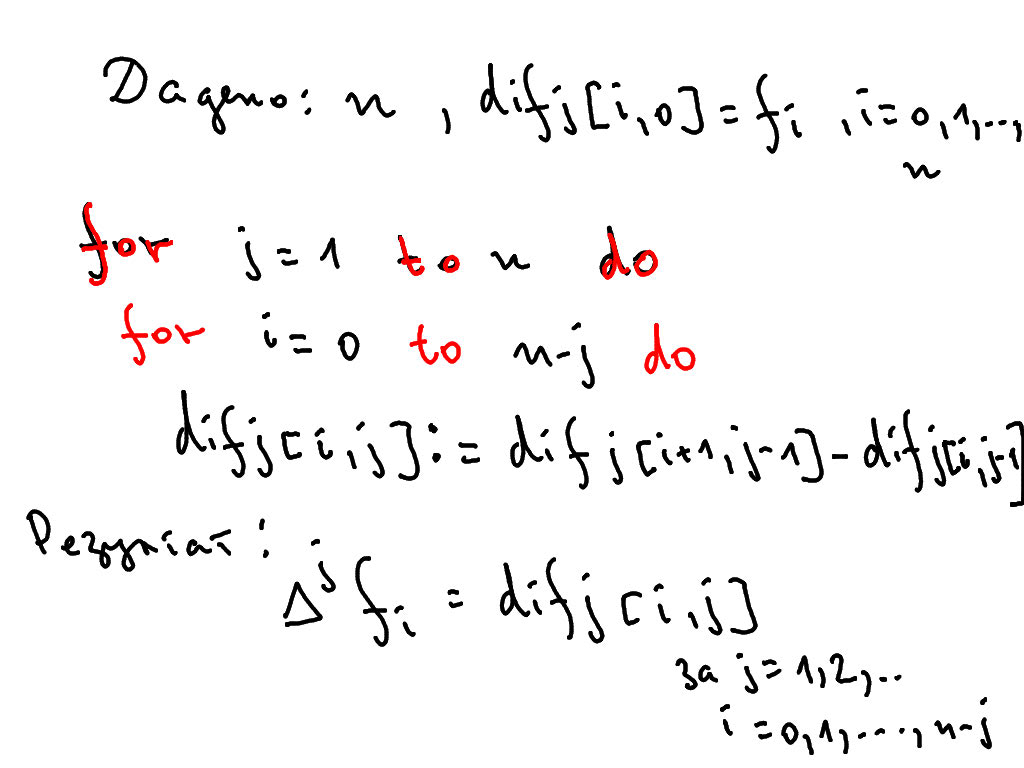 Дадено: n , difj[i,0] = fi , i=0,1,...,
n
for j=1 to n do
for i=0 to n-j do
difj[i,j]:= difj[i+1,j-1]-difj[i,j-1]
Резултат:
Δ^j fi = difj[i,j]
за j=1,2,..
i=0,1,...,n-j